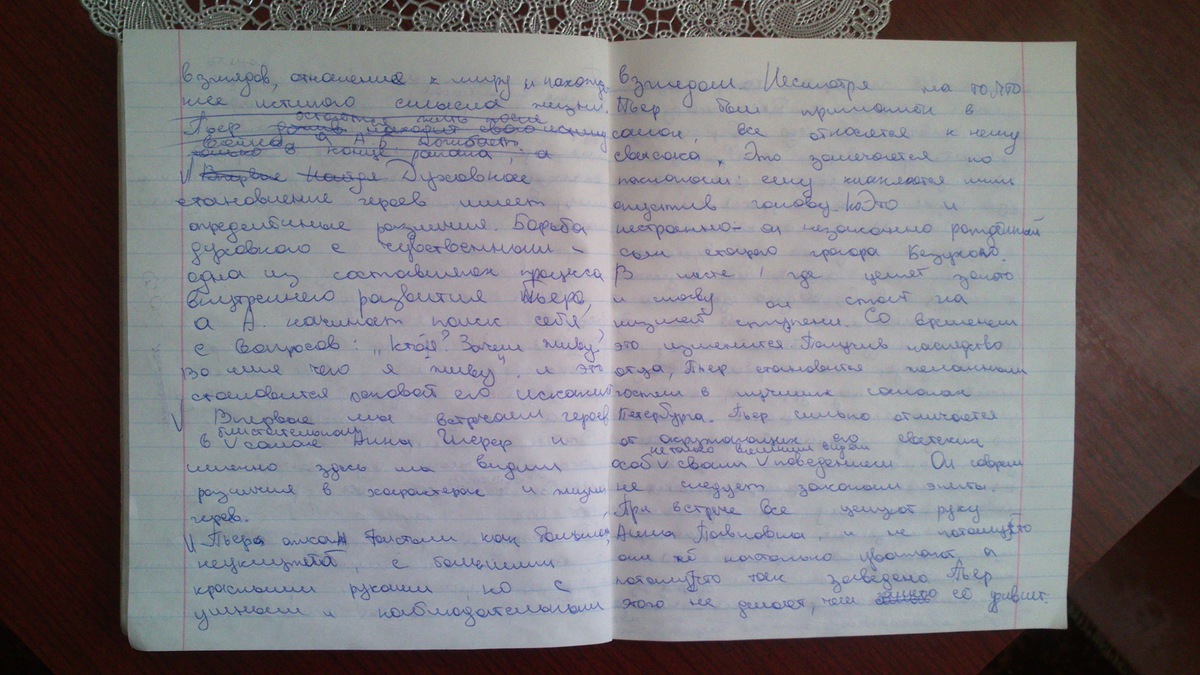 взглядов, отношения к миру и нахожде-
ние истинного смысла жизни.
остаётся жить после
Пьер находит свою истину
только в конце романа, а
Впервые Найдя Духовное
становление героев имеет
определённые различия. Борьба
духовного с чувственным –
одна из составляющих процесса
внутреннего развития Пьера,
а А. начинает поиск себя
с вопросов: „Кто я? Зачем живу?
Во имя чего я живу" и это
становится основой его исканий
Впервые мы встречаем героев
блистательном
в салоне Анна Шерер и
именно здесь мы видим
различия в характерах и жизни
герев.
Пьера описал Толстой как большим,
неуклюжей, с большими
красными руками, но с
умным и наблюдательным
взглядом. Несмотря на то, что
Пьер был принятой в
салон, все относятся к нему
свысока. Это замечается по
поклонам: ему кланяются лишь
опустив голову. Это и
нестранно – он незаконно рождённый
сын старого графа Безухова.
В месте, где ценят золото
и славу он стоит на
низшей ступени. Со временем
это изменится Получив наследство
отца, Пьер становится желанным
гостем в лучших салонах
Петербурга. Пьер сильно отличается
от окружающих его светских
не только внешним видом
особ своим поведением Он совсем
не следует законам элиты.
При встрече все целуют руку
Анна Павловна, и не потому что
они её настолько уважают, а
потому что так заведено Пьер
этого не делает, чем её удивит.